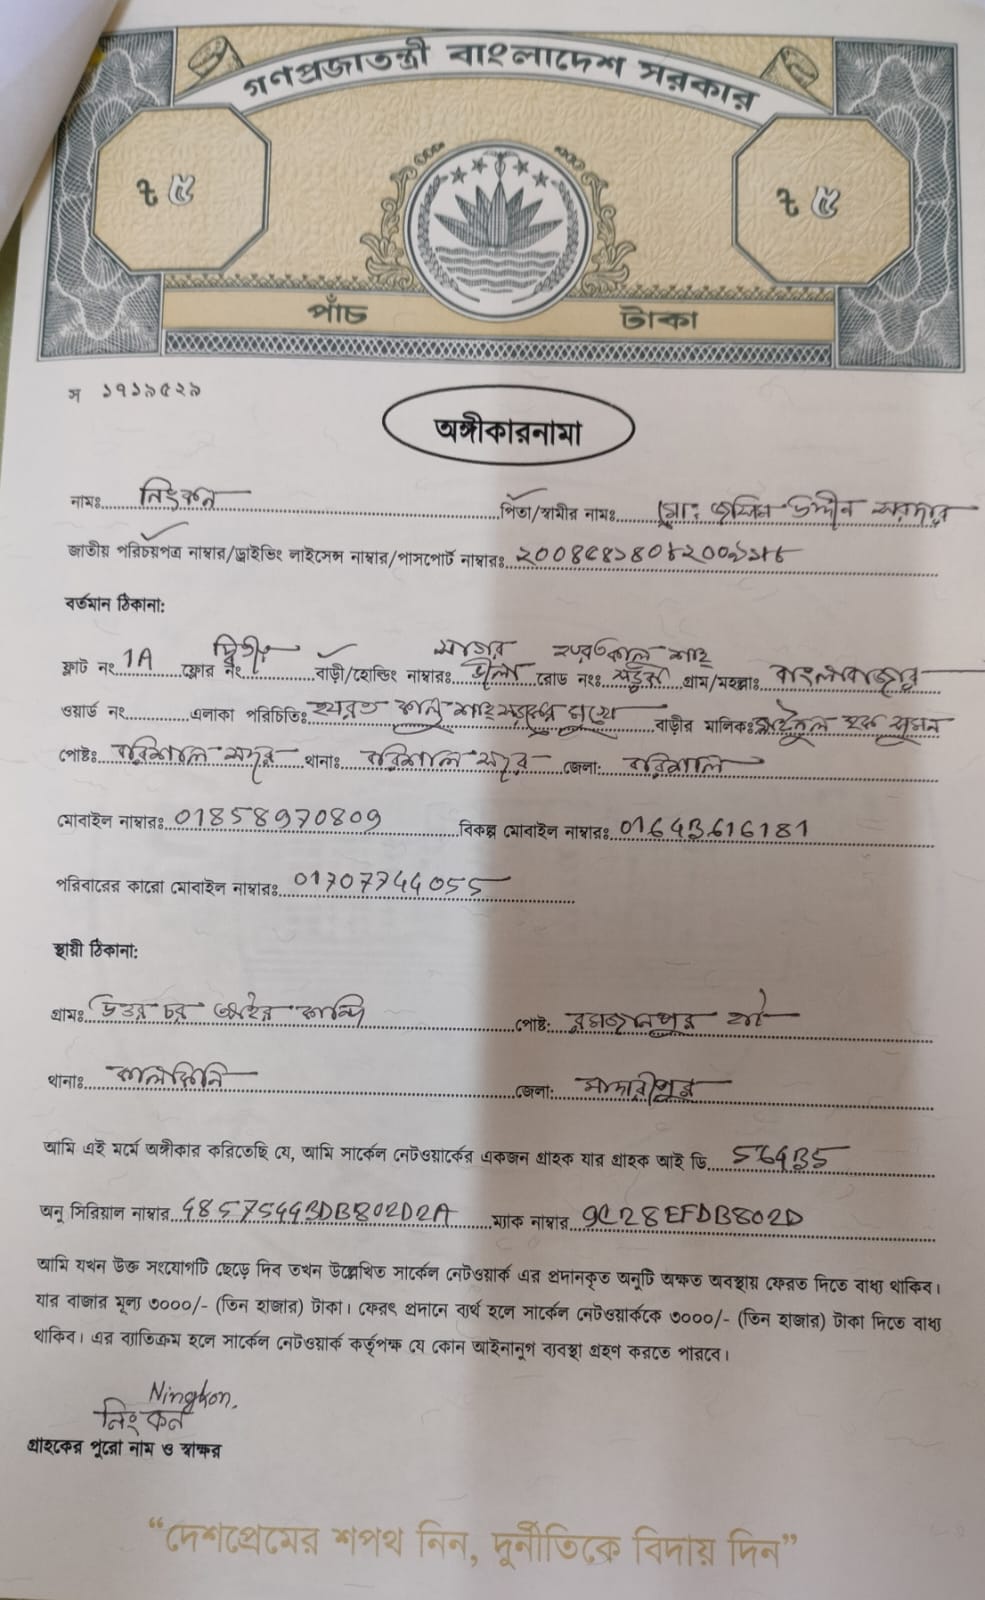 গণপ্রজাতন্ত্রী বাংলাদেশ সরকার
৳ ৫ ৳ ৫
পাঁচ টাকা
স ১৭১৯৫২৯
অঙ্গীকারনামা
নামঃ নিংকন পিতা/স্বামীর নামঃ মোঃ জসিম উদ্দীন সরদার
জাতীয় পরিচয়পত্র নাম্বার/ড্রাইভিং লাইসেন্স নাম্বার/পাসপোর্ট নাম্বারঃ
বর্তমান ঠিকানা:
ফ্লাট নং 1A ফ্লোর নং দ্বিতীয় বাড়ী/হোল্ডিং নাম্বারঃ সাগর ভীলা রোড নংঃ সড়ক গ্রাম/মহল্লাঃ বাংলাবাজার
ওয়ার্ড নং এলাকা পরিচিতিঃ হযরত কালু শাহ সড়কের মুখে বাড়ীর মালিকঃ হক সুমন
পোষ্টঃ বরিশাল সদর থানাঃ বরিশাল সদর জেলা: বরিশাল
মোবাইল নাম্বারঃ 01858970809 বিকল্প মোবাইল নাম্বারঃ 01643616181
পরিবারের কারো মোবাইল নাম্বারঃ 01707744055
স্থায়ী ঠিকানা:
গ্রামঃ উত্তর চর কান্দি পোষ্ট: রমজানপুর
থানাঃ কালকিনি জেলা: মাদারীপুর
আমি এই মর্মে অঙ্গীকার করিতেছি যে, আমি সার্কেল নেটওয়ার্কের একজন গ্রাহক যার গ্রাহক আই ডি
অনু সিরিয়াল নাম্বার 48575443DB802D2A ম্যাক নাম্বার 9C28EFDB802D
আমি যখন উক্ত সংযোগটি ছেড়ে দিব তখন উল্লেখিত সার্কেল নেটওয়ার্ক এর প্রদানকৃত অনুটি অক্ষত অবস্থায় ফেরত দিতে বাধ্য থাকিব।
যার বাজার মূল্য ৩০০০/- (তিন হাজার) টাকা। ফেরৎ প্রদানে ব্যর্থ হলে সার্কেল নেটওয়ার্ককে ৩০০০/- (তিন হাজার) টাকা দিতে বাধ্য
থাকিব। এর ব্যাতিক্রম হলে সার্কেল নেটওয়ার্ক কর্তৃপক্ষ যে কোন আইনানুগ ব্যবস্থা গ্রহণ করতে পারবে।
Ningkon.
নিংকন
গ্রাহকের পুরো নাম ও স্বাক্ষর
“দেশপ্রেমের শপথ নিন, দুর্নীতিকে বিদায় দিন”